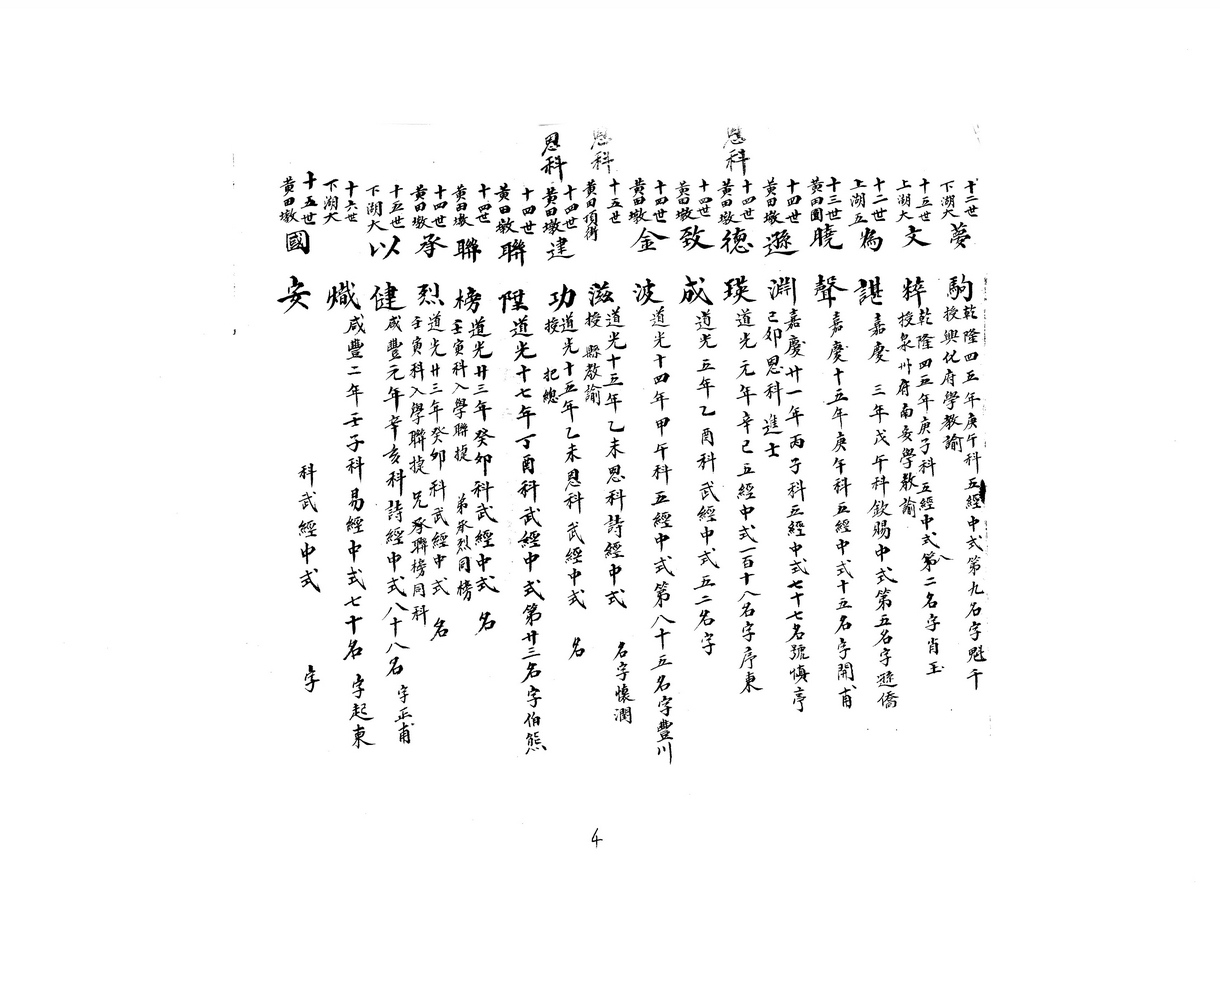 十二世
下湖大
夢駒
乾隆四五年庚午科五經中式第九名字魁千
授興化府學教諭
十五世
上湖大
文粹
乾隆四五年庚子科五經中式第二名字肖玉
八
授泉州府南安學教諭
十二世
上湖五
為諶
嘉慶 三年戊午科欽賜中式第五名字遜僑
十三世
黃田圍
曉聲
嘉慶十五年庚午科五經中式十五名字開甫
十四世
黃田墩
遜淵
嘉慶廿一年丙子科五經中式七十七名號慎亭
己卯恩科進士
恩科
十四世
黃田墩
德瑛
道光元年辛巳五經中式一百十八名字序東
十四世
黃田墩
致成
道光五年乙酉科武經中式五二名字
十四世
黃田墩
金波
道光十四年甲午科五經中式第八十五名字豐川
恩科
十五世
黃田頂衛
滋
道光十五年乙未恩科詩經中式 名字懷潤
授 縣教諭
恩科
十四世
黃田墩
建功
道光十五年乙未恩科武經中式 名
授 把總
十四世
黃田墩
聯陞
道光十七年丁酉科武經中式第廿三名字伯熊
十四世
黃田墩
聯榜
道光廿三年癸卯科武經中式 名
壬寅科入學聯捷 弟承烈同榜
十四世
黃田墩
承烈
道光廿三年癸卯科武經中式 名
壬寅科入學聯捷 兄承聯榜同科
十五世
下湖大
以健
咸豐元年辛亥科詩經中式八十八名 字正甫
十六世
下湖大
熾
咸豐二年壬子科易經中式七十名 字起東
十五世
黃田墩
國安
科武經中式 字
4